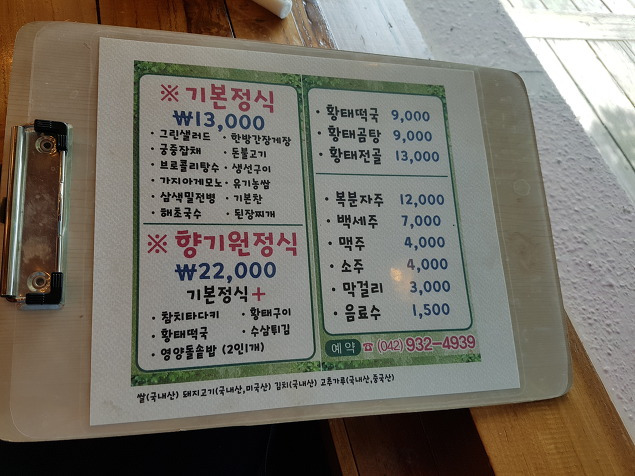 ※ 기본정식
₩13,000
· 그린샐러드 · 한방간장게장
· 궁중잡채 · 돈불고기
· 브로콜리탕수 · 생선구이
· 가지아게모노 · 유기농쌈
· 삼색밀전병 · 기본찬
· 해초국수 · 된장찌개
※ 향기원정식
₩22,000
기본정식+
· 참치타다키 · 황태구이
· 황태떡국 · 수삼튀김
· 영양돌솥밥 (2인1개)
· 황태떡국 9,000
· 황태곰탕 9,000
· 황태전골 13,000
· 복분자주 12,000
· 백세주 7,000
· 맥주 4,000
· 소주 4,000
· 막걸리 3,000
· 음료수 1,500
예약 ☎ (042) 932-4939
쌀(국내산) 돼지고기(국내산,미국산) 김치(국내산) 고추가루(국내산,중국산)